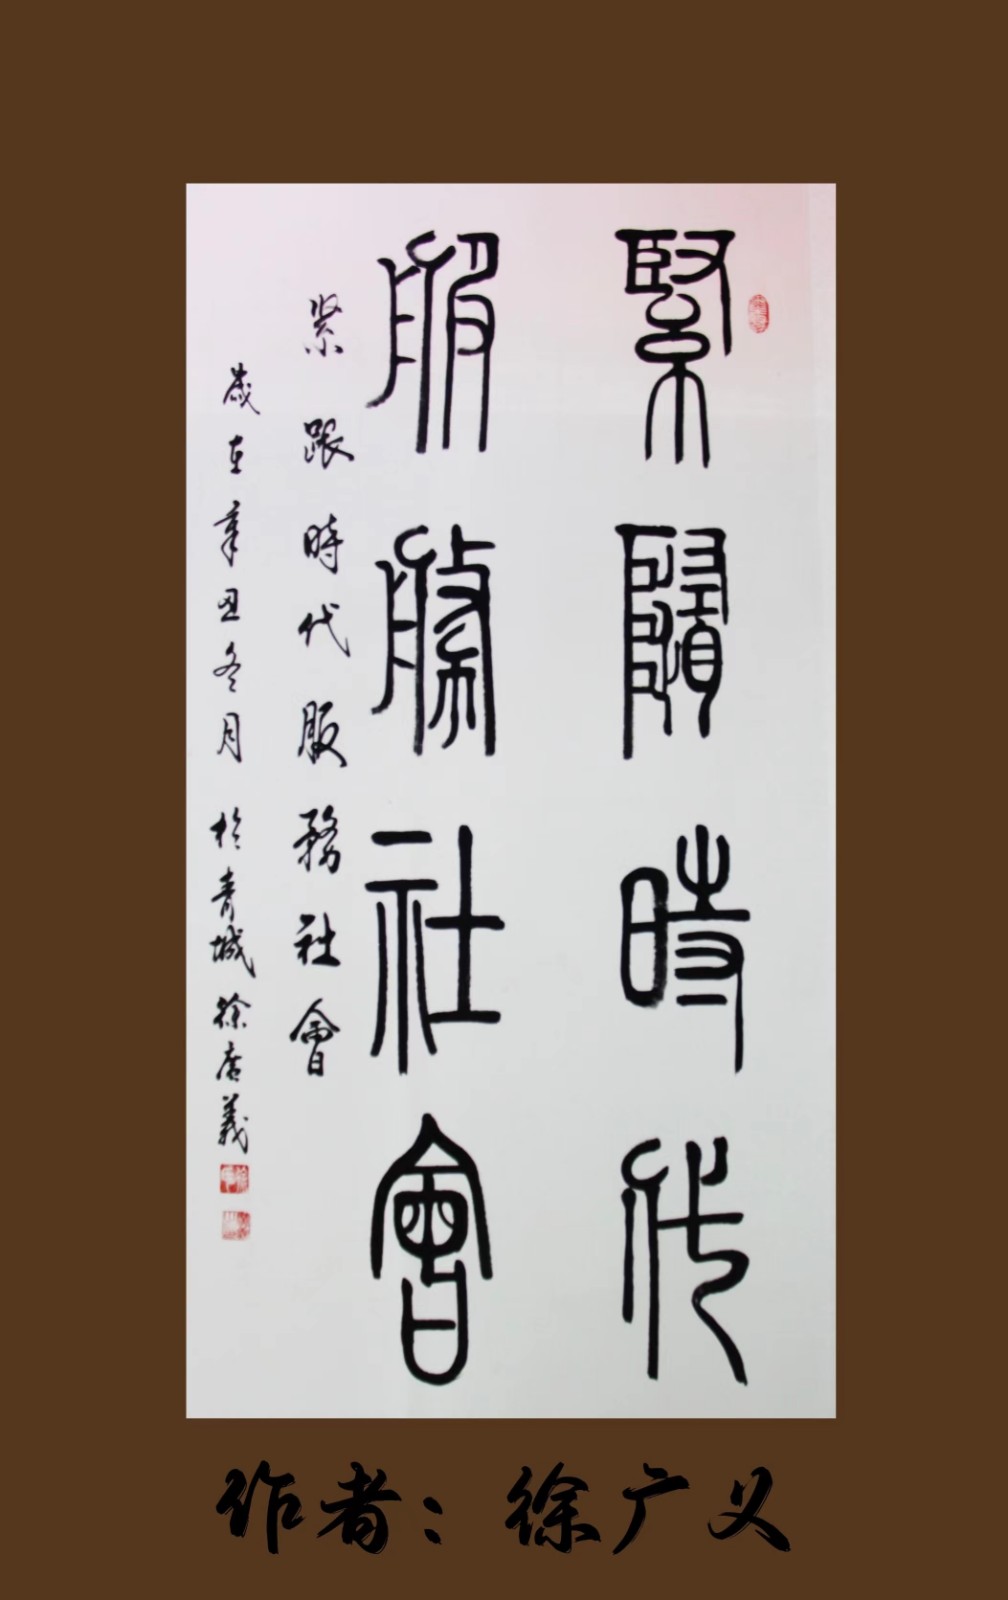 緊時代
服務社會
紧跟時代服務社會
歲在辛丑冬月 於青城徐廣義
作者：徐广义